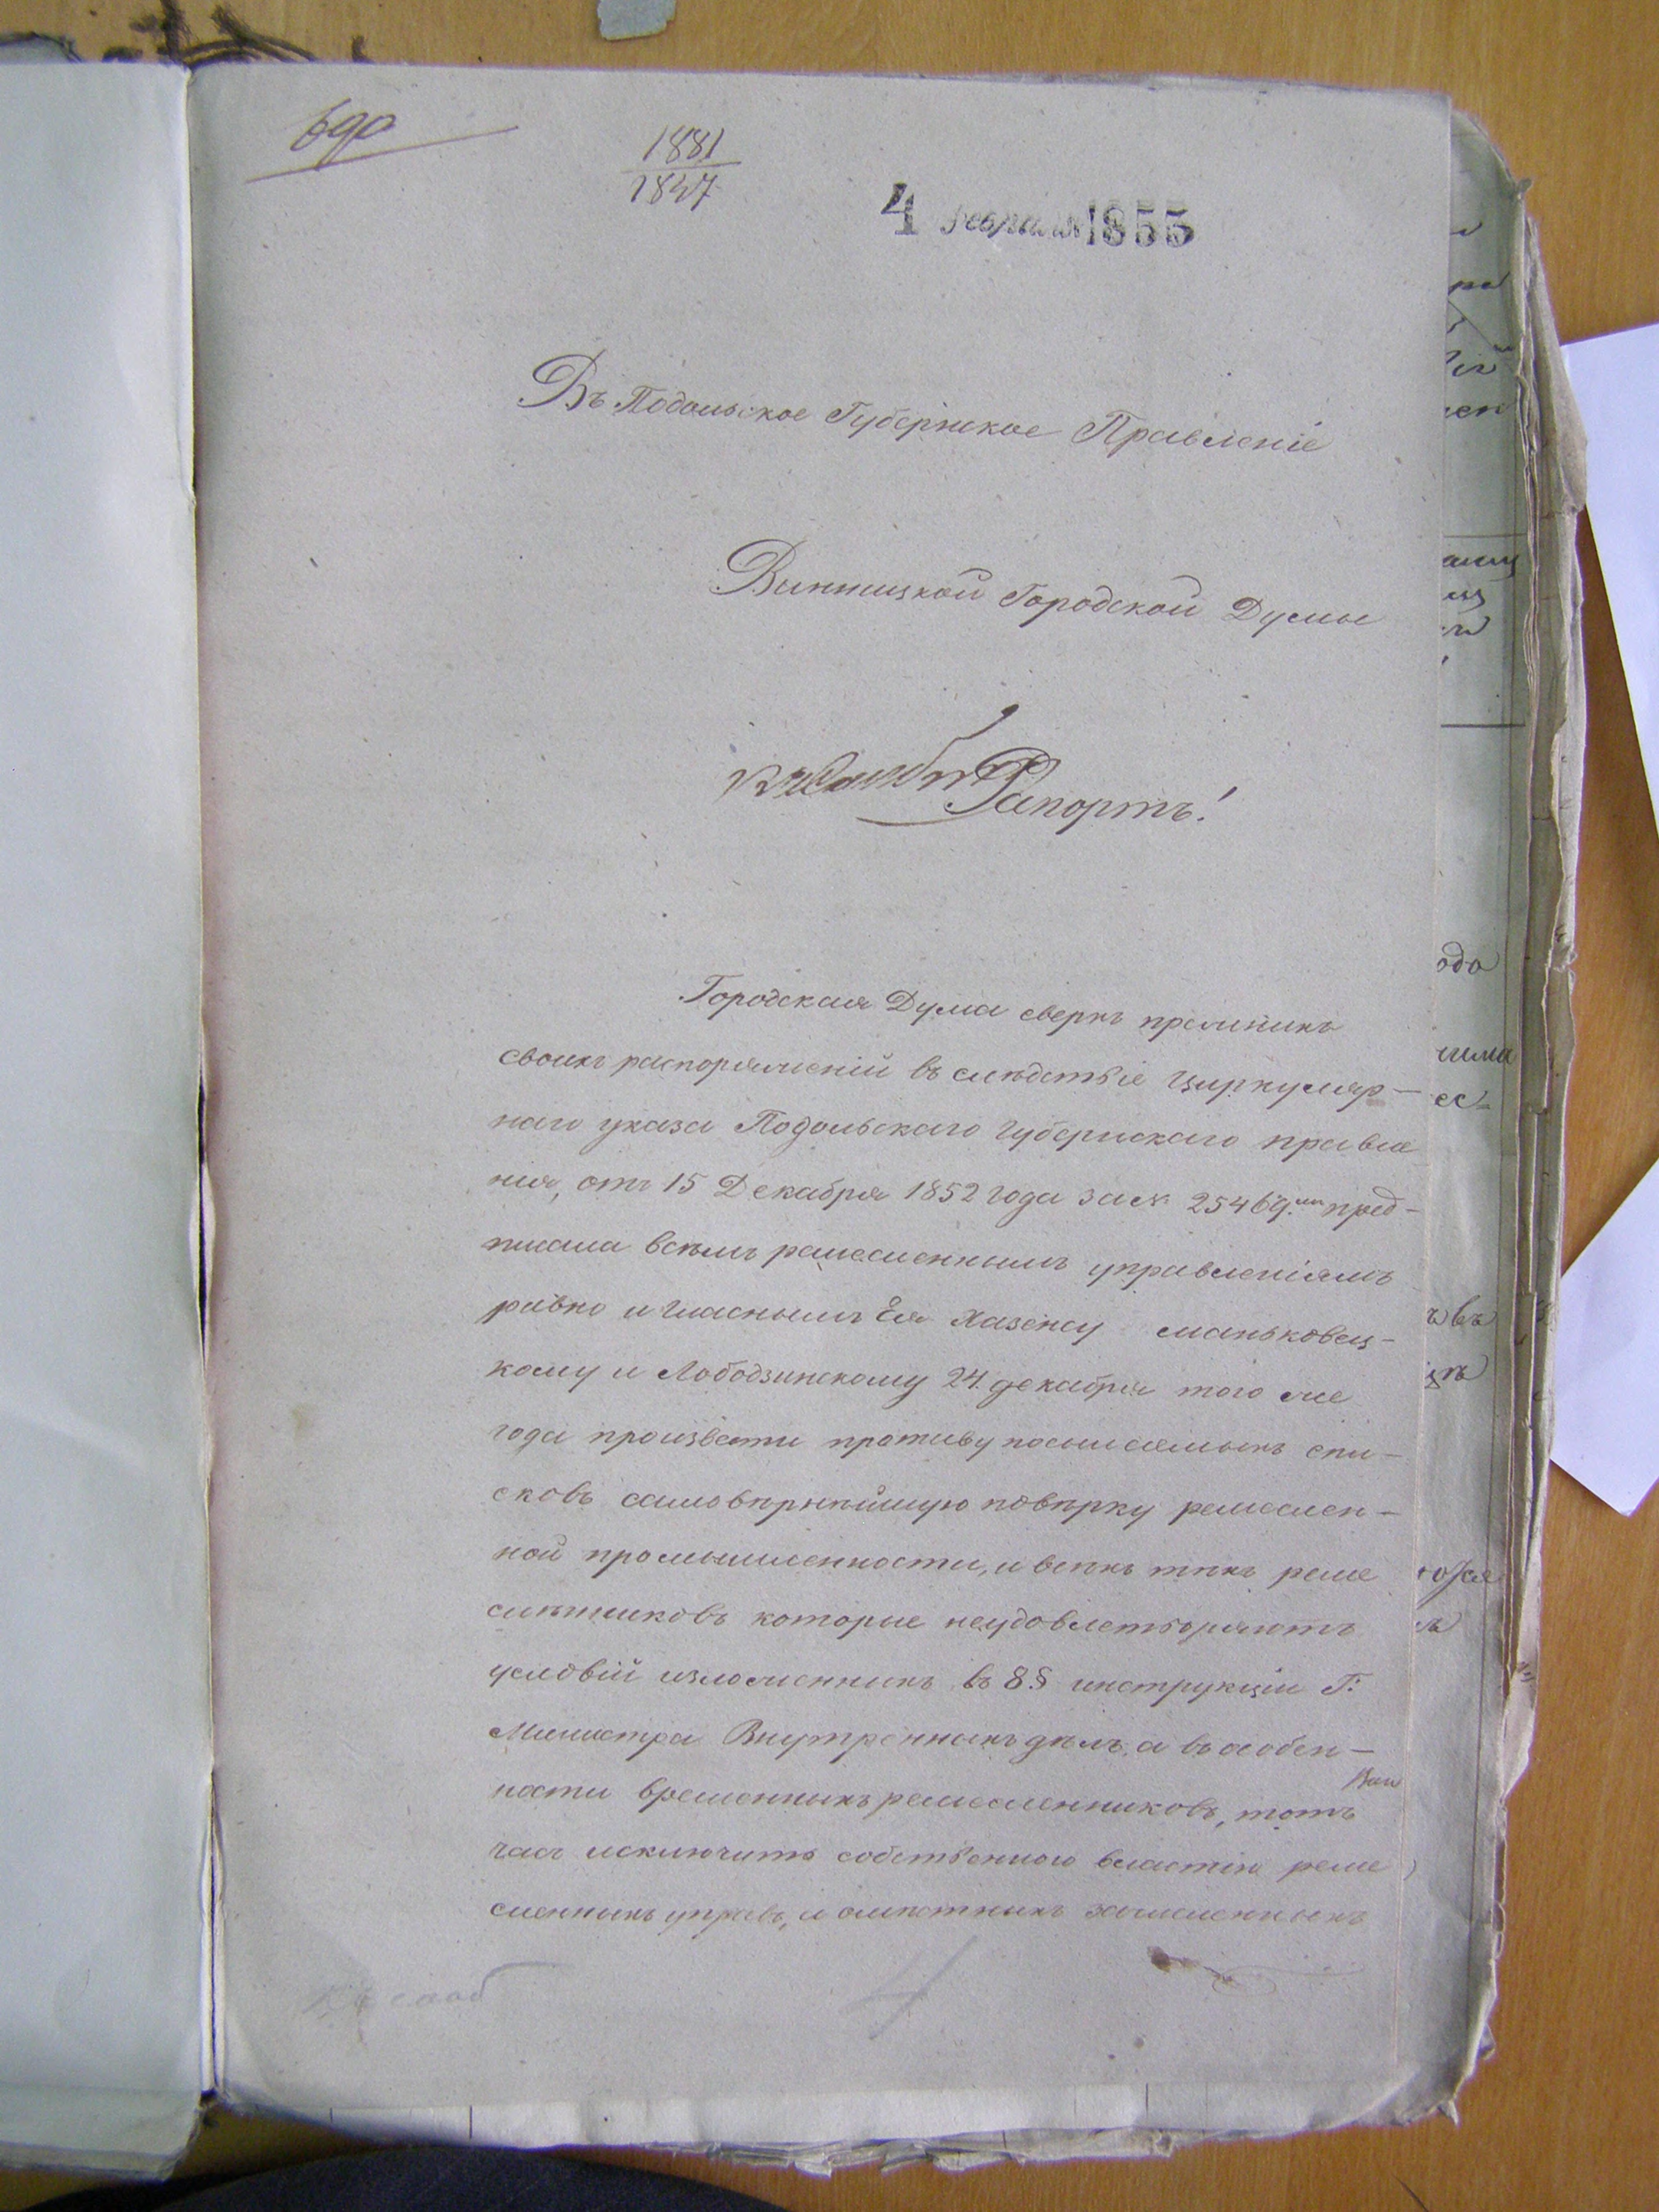 690
1881
1847
4 Февраля 1855
Въ Подольское Губернское Правленіе
Винницкой Городской Думы
Рапортъ!
Городская Дума сверхъ прежнихъ
своихъ распоряженій въ слѣдствіе Циркуляр-
наго указа Подольскаго Губернскаго правле
нія, отъ 15 Декабря 1852 года за № 25469.мъ пред-
писала всѣмъ ремесленнымъ управленіямъ
равно и гласнымъ Ея Хазену маньковец-
кому и Лободзинскому 24. декабря того же
года произвести противу посылаемыхъ спи-
сковъ самовѣрнѣйшую повѣрку ремеслен-
ной промышленности, и всѣхъ тѣхъ реме
слѣнниковъ которые неудовлетворяютъ
условій изложенныхъ въ 8.§ инструкціи Г:
Министра Внутреннихъ дѣлъ, а въ особен-
ности временныхъ ремесленниковъ, тотъ
часъ исключить собственною властію реме
сленныхъ управъ, и зачисленныхъ
4
ода
овъ